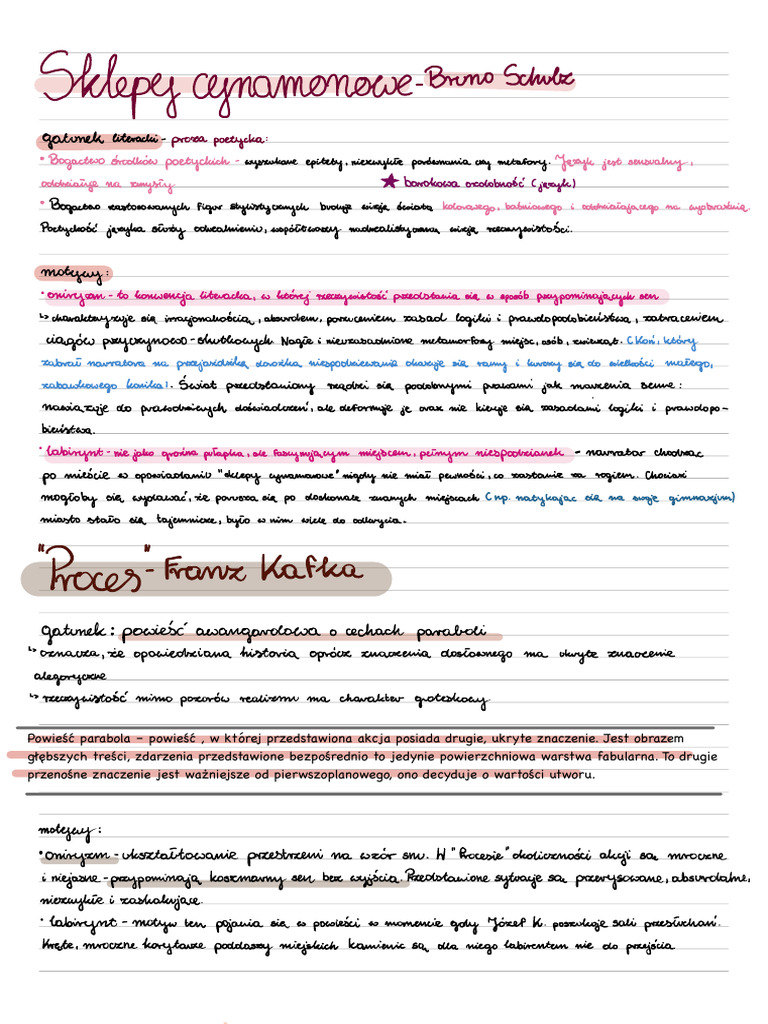 Sklepy cynamonowe - Bruno Schulz
gatunek literacki - proza poetycka:
• Bogactwo środków poetyckich - wyszukane epitety, niezwykłe porównania czy metafory. Język jest sensualny,
oddziałuje na zmysły ★ barokowa ozdobność (język)
• Bogactwo zastosowanych figur stylistycznych buduje wizję świata kolorowego, baśniowego i oddziałującego na wyobraźnię.
Poetyckość języka służy odrealnieniu, współtworzy nadrealistyczną wizję rzeczywistości.
motywy:
• oniryzm - to konwencja literacka, w której rzeczywistość przedstawia się w sposób przypominających sen
↳ charakteryzuje się irracjonalnością, absurdem, porzuceniem zasad logiki i prawdopodobieństwa, zatraceniem
ciągów przyczynowo-skutkowych. Nagłe i nieuzasadnione metamorfozy miejsc, osób, zwierząt. (Koń, który
zabrał narratora na przejażdżkę dorożką niespodziewanie okazuje się ranny i kurczy się do wielkości małego,
zabawkowego konika). Świat przedstawiony rządzi się podobnymi prawami jak marzenia senne:
nawiązuje do prawdziwych doświadczeń, ale deformuje je oraz nie kieruje się zasadami logiki i prawdopo-
bieństwa.
• labirynt - nie jako groźna pułapka, ale fascynującym miejscem, pełnym niespodzianek - narrator chodząc
po mieście w opowiadaniu "sklepy cynamonowe" nigdy nie miał pewności, co zastanie za rogiem. Chociaż
mogłoby się wydawać, że porusza się po doskonale znanych miejscach (np. natykając się na swoje gimnazjum)
miasto stało się tajemnicze, było w nim wiele do odkrycia.
"Proces" - Franz Kafka
gatunek: powieść awangardowa o cechach paraboli
↳ oznacza, że opowiedziana historia oprócz znaczenia dosłownego ma ukryte znaczenie
alegoryczne
↳ rzeczywistość mimo pozorów realizmu ma charakter groteskowy
Powieść parabola – powieść , w której przedstawiona akcja posiada drugie, ukryte znaczenie. Jest obrazem
głębszych treści, zdarzenia przedstawione bezpośrednio to jedynie powierzchniowa warstwa fabularna. To drugie
przenośne znaczenie jest ważniejsze od pierwszoplanowego, ono decyduje o wartości utworu.
motywy:
• oniryzm - ukształtowanie przestrzeni na wzór snu. W "Procesie" okoliczności akcji są mroczne
i niejasne - przypominają koszmarny sen bez wyjścia. Przedstawione sytuacje są przerysowane, absurdalne,
niezwykłe i zaskakujące.
• labirynt - motyw ten pojawia się w powieści w momencie gdy Józef K. poszukuje sali przesłuchań.
Kręte, mroczne korytarze poddaszy miejskich kamienic są dla niego labiryntem nie do przejścia